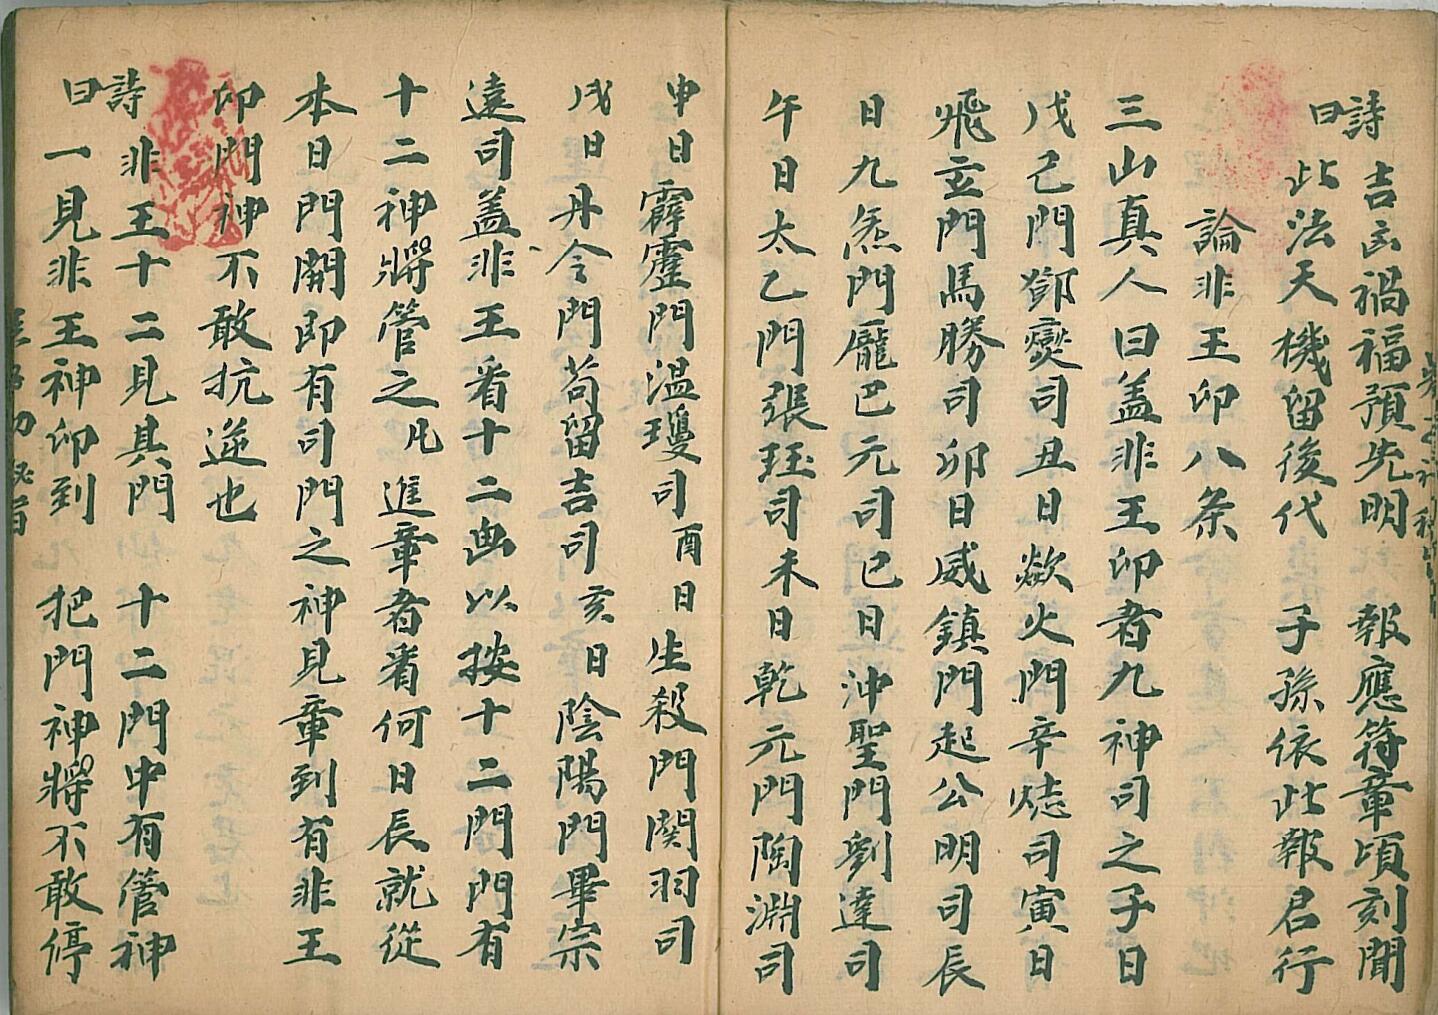 詩曰 吉凶禍福預先明 報應符章頃刻聞
此法天機留後代 子孫依此報君行
論非王卯八条
三山真人曰盖非王卯者九神司之子日
戊己門鄧燮司丑日歘火門辛𢙺司寅日
飛玄門馬勝司卯日威鎮門起公明司辰
日九炁門龎巴元司巳日沖聖門劉達司
午日太乙門張珏司未日乾元門陶淵司
申日霹靂門温瓊司酉日生殺門関羽司
戌日丹令門苟留吉司亥日陰陽門畢宗
遠司盖非王看十二画以按十二門門有
十二神將管之凡進章者看何日長就從
本日門開即有司門之神見章到有非王
卯門神不敢抗逆也
詩曰 非王十二見其門 十二門中有管神
一見非王神卯到 把門神將不敢停